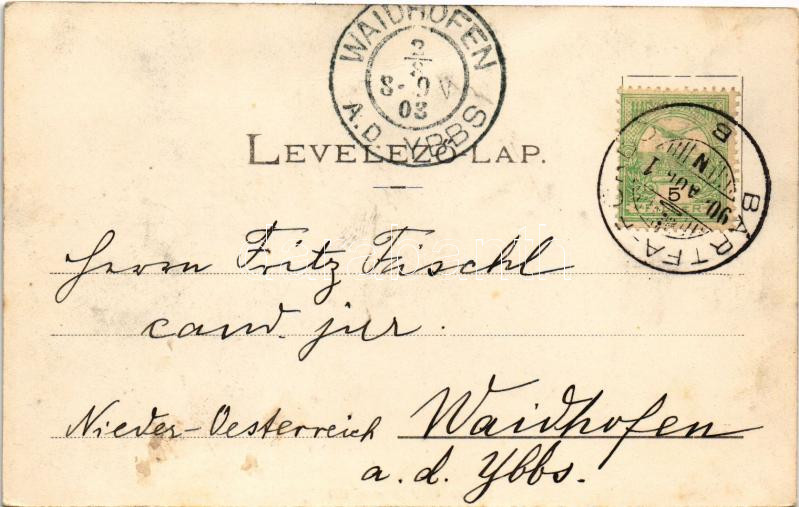 WAIDHOFEN
8-9 V
03
A.D. YBBS
LEVELEZŐ-LAP.
BÁRTFA
B
Herrn Fritz Tüschl
cand. jur.
Nieder-Oesterreich Waidhofen
a. d. Ybbs.